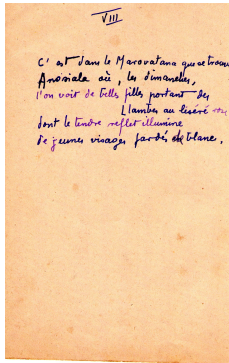 VIII
C'est dans le Marovatana que se trouve
Anosiala où, les dimanches,
l'on voit de belles filles portant des
Llambas au liséré
dont le tendre reflet illumine
de jeunes visages fardés de blanc.